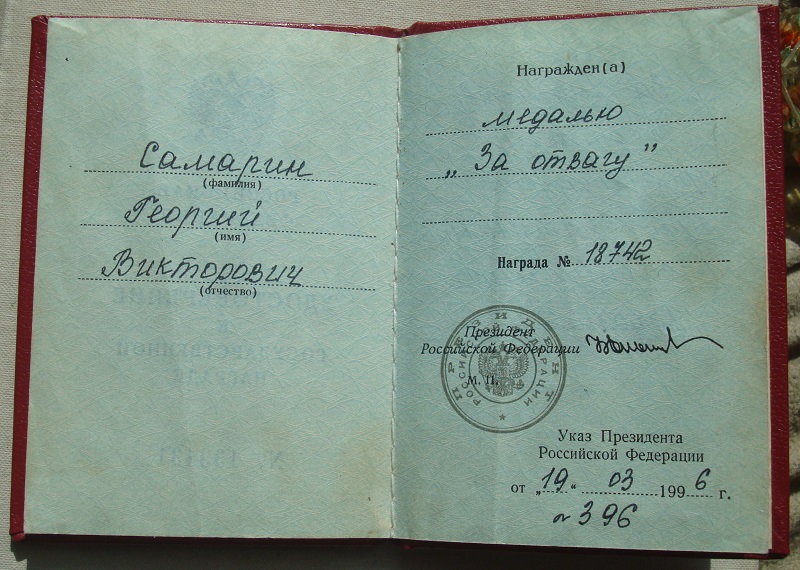 Самарин
(фамилия)
Георгий
(имя)
Викторович
(отчество)
Награжден(а)
медалью
„За отвагу”
Награда № 18742
Президент
Российской Федерации
М. П.
ПРЕЗИДЕНТ
РОССИЙСКОЙ ФЕДЕРАЦИИ
Указ Президента
Российской Федерации
от „19“ 03 1996 г.
№ 396